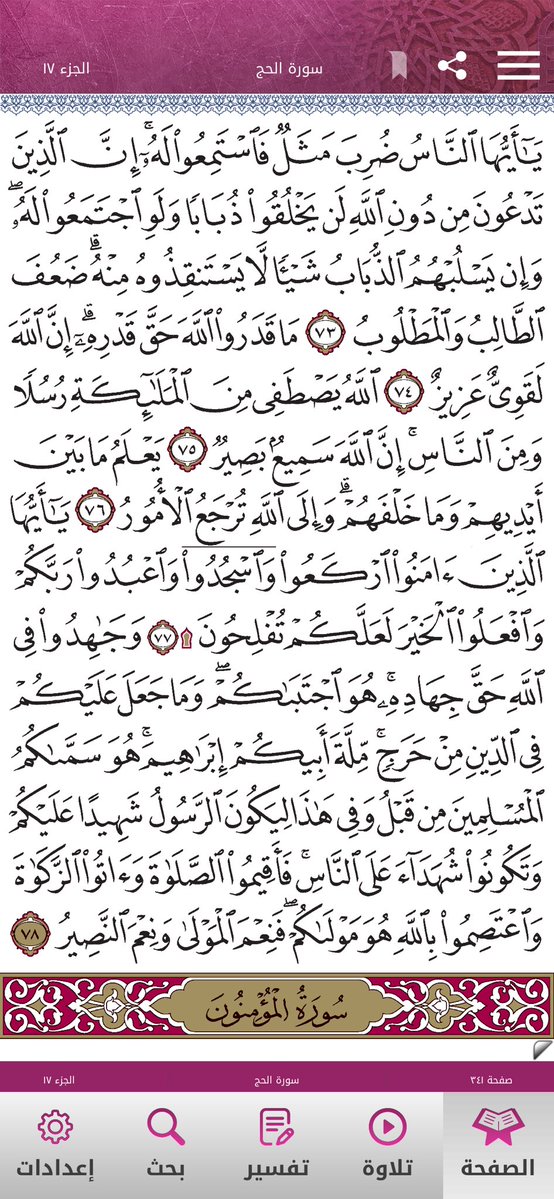 سورة الحج
الجزء ١٧
يَـٰٓأَيُّهَا ٱلنَّاسُ ضُرِبَ مَثَلٌ فَٱسْتَمِعُوا۟ لَهُۥٓ ۚ إِنَّ ٱلَّذِينَ
تَدْعُونَ مِن دُونِ ٱللَّهِ لَن يَخْلُقُوا۟ ذُبَابًا وَلَوِ ٱجْتَمَعُوا۟ لَهُۥ ۖ
وَإِن يَسْلُبْهُمُ ٱلذُّبَابُ شَيْـًٔا لَّا يَسْتَنقِذُوهُ مِنْهُ ۚ ضَعُفَ
ٱلطَّالِبُ وَٱلْمَطْلُوبُ ٧٣ مَا قَدَرُوا۟ ٱللَّهَ حَقَّ قَدْرِهِۦٓ ۗ إِنَّ ٱللَّهَ
لَقَوِىٌّ عَزِيزٌ ٧٤ ٱللَّهُ يَصْطَفِى مِنَ ٱلْمَلَـٰٓئِكَةِ رُسُلًا
وَمِنَ ٱلنَّاسِ ۚ إِنَّ ٱللَّهَ سَمِيعٌۢ بَصِيرٌ ٧٥ يَعْلَمُ مَا بَيْنَ
أَيْدِيهِمْ وَمَا خَلْفَهُمْ ۗ وَإِلَى ٱللَّهِ تُرْجَعُ ٱلْأُمُورُ ٧٦ يَـٰٓأَيُّهَا
ٱلَّذِينَ ءَامَنُوا۟ ٱرْكَعُوا۟ وَٱسْجُدُوا۟ وَٱعْبُدُوا۟ رَبَّكُمْ
وَٱفْعَلُوا۟ ٱلْخَيْرَ لَعَلَّكُمْ تُفْلِحُونَ ۩ ٧٧ وَجَـٰهِدُوا۟ فِى
ٱللَّهِ حَقَّ جِهَادِهِۦ ۚ هُوَ ٱجْتَبَىٰكُمْ ۖ وَمَا جَعَلَ عَلَيْكُمْ
فِى ٱلدِّينِ مِنْ حَرَجٍ ۚ مِّلَّةَ أَبِيكُمْ إِبْرَٰهِيمَ ۚ هُوَ سَمَّىٰكُمُ
ٱلْمُسْلِمِينَ مِن قَبْلُ وَفِى هَـٰذَا لِيَكُونَ ٱلرَّسُولُ شَهِيدًا عَلَيْكُمْ
وَتَكُونُوا۟ شُهَدَآءَ عَلَى ٱلنَّاسِ ۚ فَأَقِيمُوا۟ ٱلصَّلَوٰةَ وَءَاتُوا۟ ٱلزَّكَوٰةَ
وَٱعْتَصِمُوا۟ بِٱللَّهِ هُوَ مَوْلَىٰكُمْ ۖ فَنِعْمَ ٱلْمَوْلَىٰ وَنِعْمَ ٱلنَّصِيرُ ٧٨
سُورَةُ الْمُؤْمِنُونَ
صفحة ٣٤١
سورة الحج
الجزء ١٧
الصفحة
تلاوة
تفسير
بحث
إعدادات